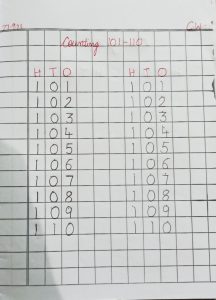 C.W
Counting 101-110
H T O H T O
1 0 1 1 0 1
1 0 2 1 0 2
1 0 3 1 0 3
1 0 4 1 0 4
1 0 5 1 0 5
1 0 6 1 0 6
1 0 7 1 0 7
1 0 8 1 0 8
1 0 9 1 0 9
1 1 0 1 1 0